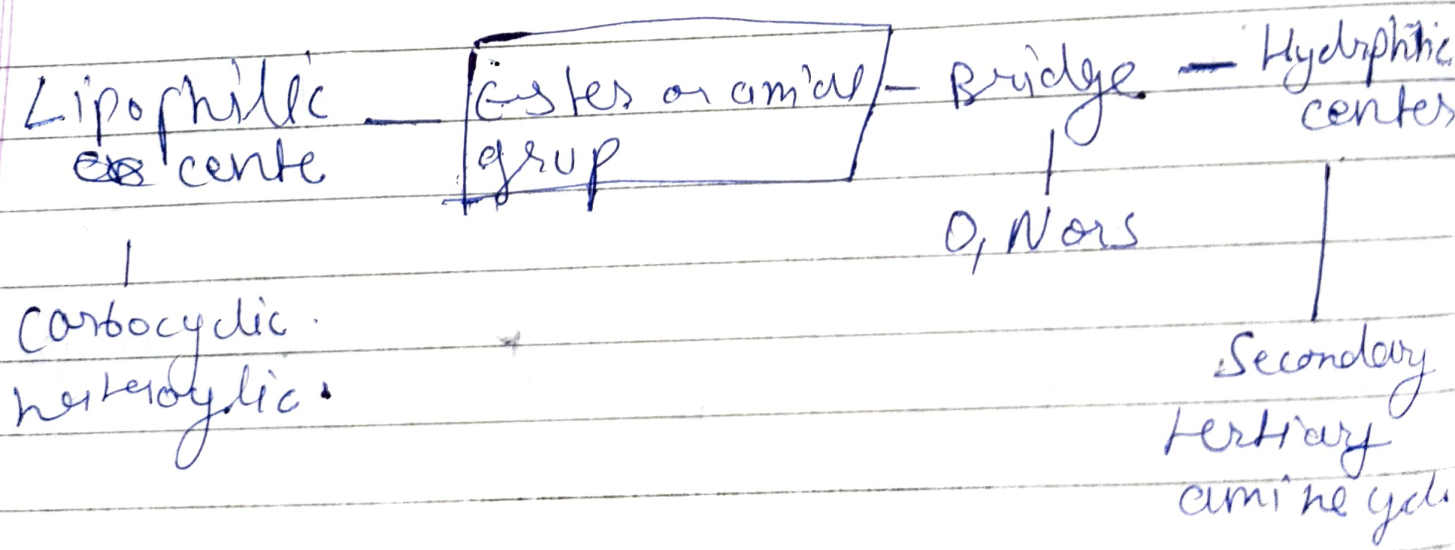 Lipophilic — Ester or amide — Bridge — Hydrphilic
cente grup center
O, N or S
Carbocyclic
heterocylic.
Secondary
tertiary
amine